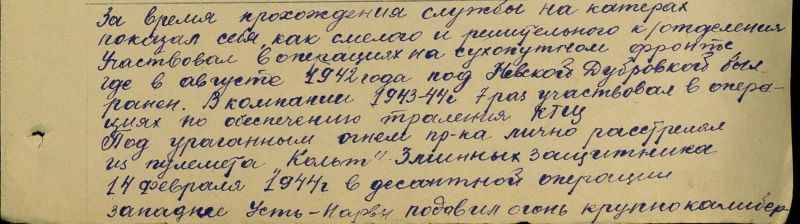 За время прохождения службы на катерах
показал себя, как смелого и решительного к/отделения
Участвовал в операциях на сухопутном фронте
где в августе 1942 года под Невской Дубровкой был
ранен. В компании 1943-44г 7 раз участвовал в опера-
циях по обеспечению траления КТЩ
Под ураганным огнем пр-ка лично расстрелял
из пулемета "Кольт" 3 минных защитника
14 февраля 1944г в десантной операции
западнее Усть-Нарвы подовил огонь крупнокалибер-